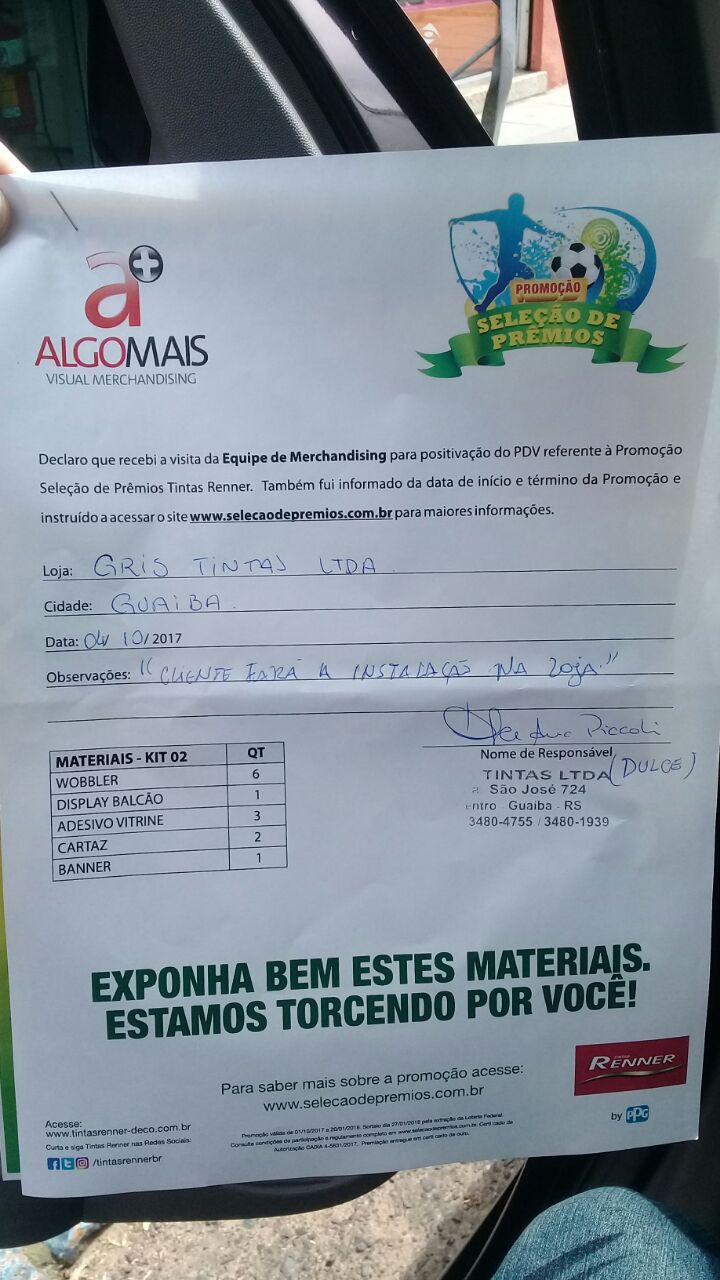 a+
ALGOMAIS
VISUAL MERCHANDISING
PROMOÇÃO
SELEÇÃO DE
PRÊMIOS
Declaro que recebi a visita da Equipe de Merchandising para positivação do PDV referente à Promoção
Seleção de Prêmios Tintas Renner. Também fui informado da data de início e término da Promoção e
instruído a acessar o site www.selecaodepremios.com.br para maiores informações.
Loja: GRIS TINTAS LTDA
Cidade: GUAIBA
Data: 04/10/2017
Observações: "CLIENTE FARÁ A INSTALAÇÃO NA LOJA."
Piccoli
Nome de Responsável
(DULCE)
TINTAS LTDA
São José 724
entro - Guaiba - RS
3480-4755 / 3480-1939
MATERIAIS - KIT 02 QT
WOBBLER 6
DISPLAY BALCÃO 1
ADESIVO VITRINE 3
CARTAZ 2
BANNER 1
EXPONHA BEM ESTES MATERIAIS.
ESTAMOS TORCENDO POR VOCÊ!
Para saber mais sobre a promoção acesse:
www.selecaodepremios.com.br
TINTAS
RENNER
by PPG
Acesse:
www.tintasrenner-deco.com.br
Curta e siga Tintas Renner nas Redes Sociais:
/tintasrennerbr
Promoção válida de 01/10/2017 a 20/01/2018. Sorteio dia 27/01/2018 pela extração da Loteria Federal.
Consulte condições de participação e regulamento completo em www.selecaodepremios.com.br. Certificado de
Autorização CAIXA 4-5631/2017. Premiação entregue em certificado de ouro.